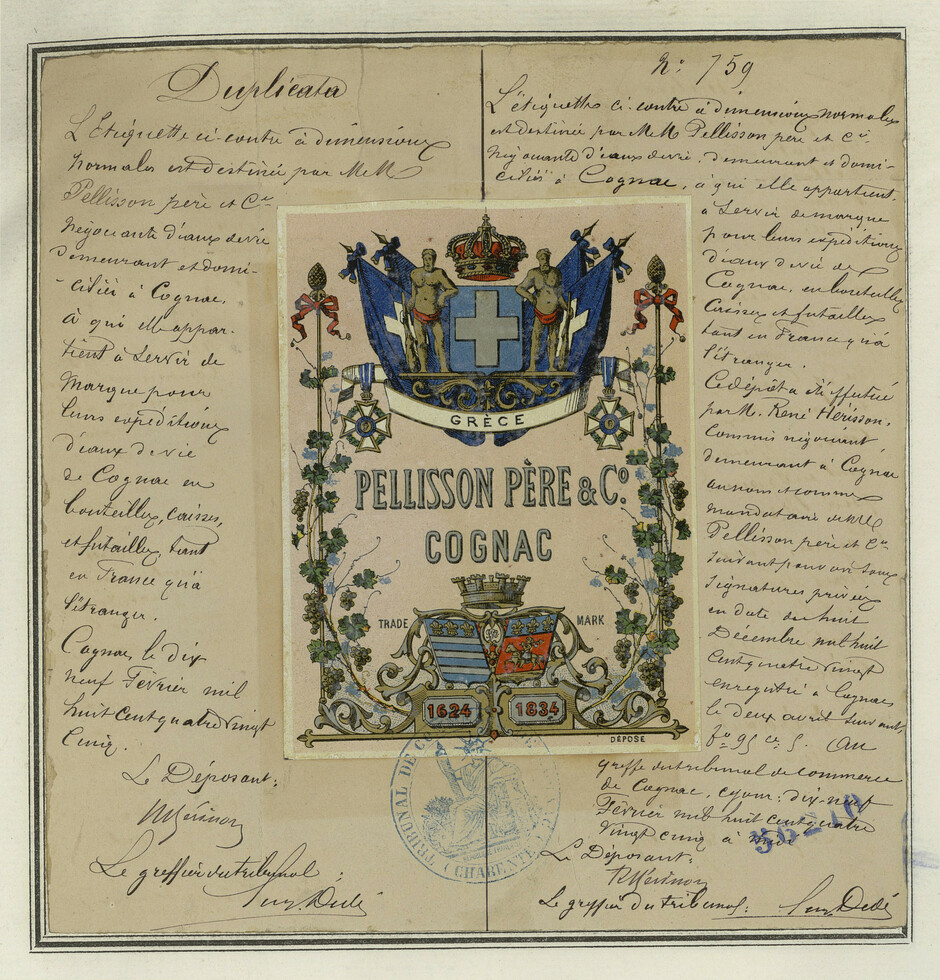 Duplicata
L'Etiquette ci-contre à dimensions
normales est destinée par MM
Pellisson père et Cie
négociants d'eaux de vie
demeurant et domi-
-ciliés à Cognac,
à qui elle appar-
tient à servir de
marque pour
leurs expéditions
d'eaux de vie
de Cognac en
bouteilles, caisses,
et futailles, tant
en France qu'à
l'étranger.
Cognac, le dix
neuf Février mil
huit cent quatre vingt
cinq.
Le Déposant:
RHérisson
Le greffier du tribunal:
N° 759
L'étiquette ci-contre à dimensions normales
est destinée par MM Pellisson père et Cie
négociants d'eaux de vie, demeurant et domi-
ciliés à Cognac, à qui elle appartient,
à servir de marque
pour leurs expéditions
d'eaux de vie de
Cognac, en bouteilles
caisses et futailles
tant en France qu'à
l'étranger.
Ce dépôt a été effectué
par M. René Hérisson,
commis négociant
demeurant à Cognac
au nom et comme
mandataire de MM
Pellisson père et Cie
suivant pouvoir sous
signatures privées
en date du huit
Décembre mil huit
cent quatre vingt
enregistré à Cognac
le deux avril suivant,
fo 95 ce 5. Au
greffe du tribunal de commerce
de Cognac, ce jour: dix-neuf
Février mil huit cent quatre
vingt cinq à midi
Le Déposant:
RHérisson
Le greffier du tribunal:
GRÈCE
PELLISSON PÈRE & Co.
COGNAC
TRADE MARK
1624 1834
DÉPOSÉ
TRIBUNAL DE
CHARENTE